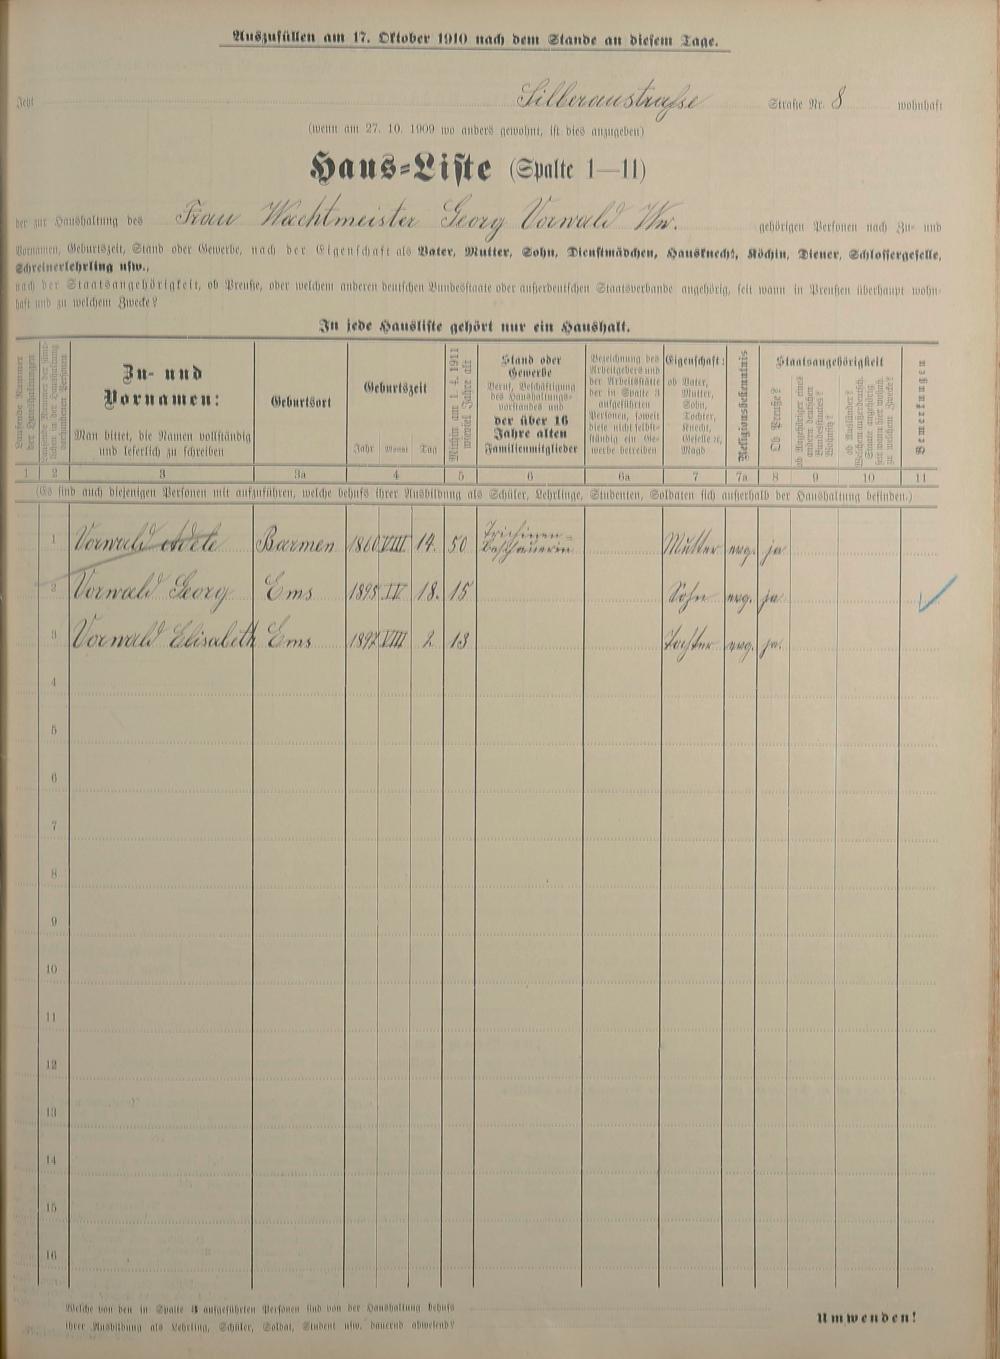 Auszufüllen am 17. Oktober 1910 nach dem Stande an diesem Tage.
Jetzt Silberaustrasse Straße Nr. 8 wohnhaft
(wenn am 27. 10. 1909 wo anders gewohnt, ist dies anzugeben)
Haus-Liste (Spalte 1—11)
der zur Haushaltung des Frau Wachtmeister Georg Vorwald Ww. gehörigen Personen nach Zu- und
Vornamen, Geburtszeit, Stand oder Gewerbe, nach der Eigenschaft als Vater, Mutter, Sohn, Dienstmädchen, Hausknecht, Köchin, Diener, Schlossergeselle,
Schreinerlehrling usw.,
nach der Staatsangehörigkeit, ob Preuße, oder welchem anderen deutschen Bundesstaate oder außerdeutschen Staatsverbande angehörig, seit wann in Preußen überhaupt wohn-
haft und zu welchem Zwecke?
In jede Hausliste gehört nur ein Haushalt.
Laufende Nummer der Haushaltungen
Zu- und Vornamen:
Man bittet, die Namen vollständig und leserlich zu schreiben
Geburtsort
Geburtszeit
Jahr Monat Tag
Mithin am 1. 4. 1911 wieviel Jahre alt
Stand oder
Gewerbe
Beruf, Beschäftigung
des Haushaltungs-
vorstandes und
der über 16
Jahre alten
Familienmitglieder
Bezeichnung des
Arbeitgebers und
der Arbeitsstätte
der in Spalte 3
aufgeführten
Personen, soweit
diese nicht selbst-
ständig ein Ge-
werbe betreiben
Eigenschaft:
ob Vater,
Mutter,
Sohn,
Tochter,
Knecht,
Geselle,
Magd
Religionsbekenntnis
Staatsangehörigkeit
Ob Preuße?
ob Angehöriger eines andern deutschen Bundesstaates?
ob Ausländer? Welchem außerdeutsch. Staate angehörig, seit wann hier wohnh. zu welchem Zwecke?
Bemerkungen
1 2 3 3a 4 5 6 6a 7 7a 8 9 10 11
(Es sind auch diejenigen Personen mit aufzuführen, welche behufs ihrer Ausbildung als Schüler, Lehrlinge, Studenten, Soldaten sich außerhalb der Haushaltung befinden.)
1 Vorwald Adele Barmen 1860 VIII 14. 50 Trichinen-beschauerin Mutter evg. ja
2 Vorwald Georg Ems 1895 IV 18. 15 Sohn evg. ja
3 Vorwald Elisabeth Ems 1897 VIII 2 13 Tochter evg. ja
4
5
6
7
8
9
10
11
12
13
14
15
16
Welche von den in Spalte 3 aufgeführten Personen sind von der Haushaltung behufs
ihrer Ausbildung als Lehrling, Schüler, Soldat, Student usw. dauernd abwesend?
Umwenden!